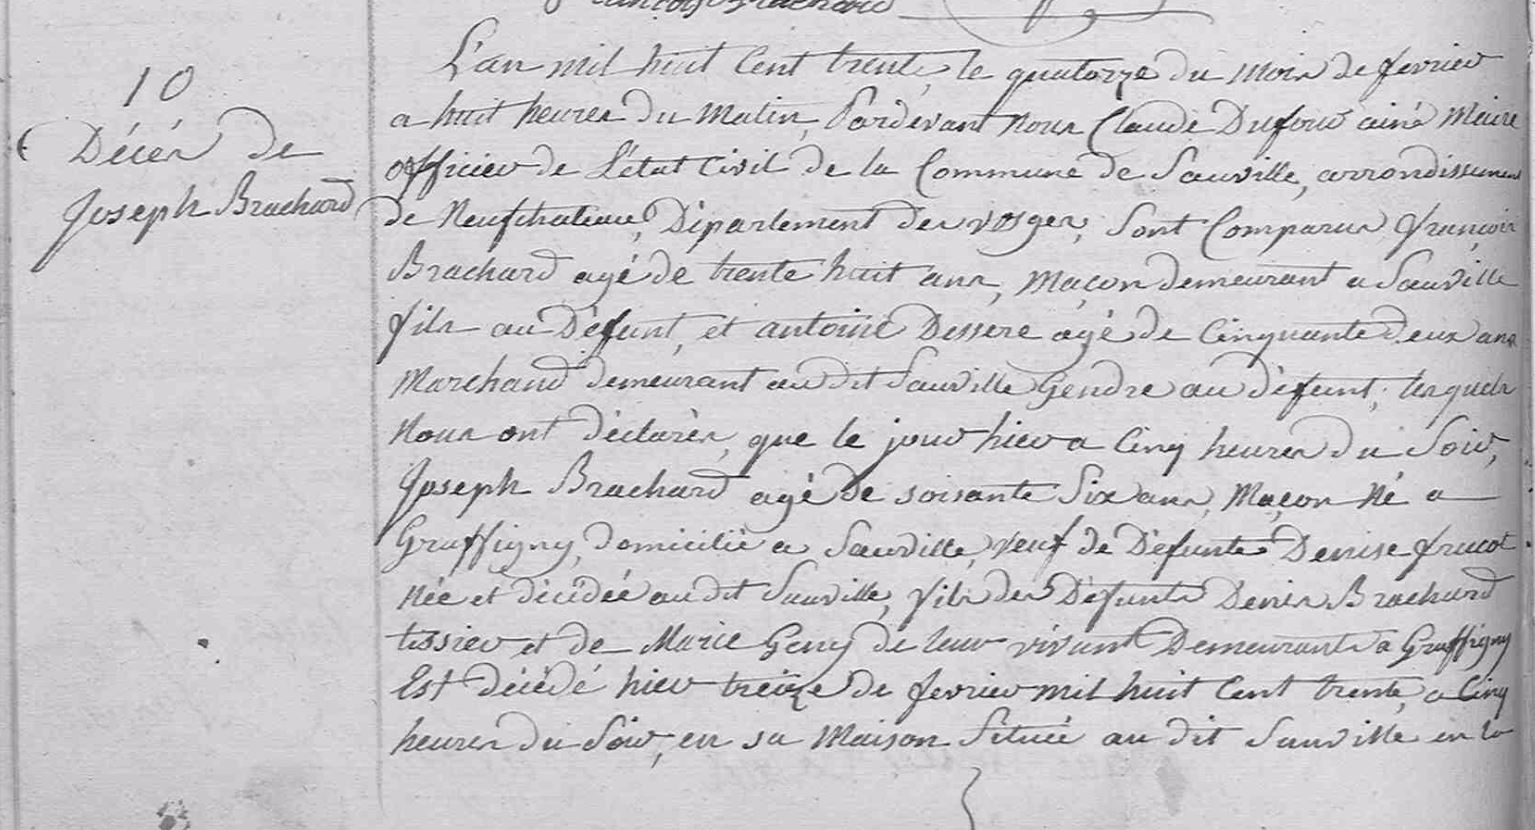 françois Brachard
10
Décés de
Joseph Brachard
L'an mil huit Cent trente, le quatorze du mois de fevrier
a huit heures du Matin, Pardevant Nous Claude Dufour ainé Maire
officier de L'état Civil de la Commune de Sauville, arrondissement
de Neufchateau, Département des vosges, Sont Comparus françois
Brachard agé de trente huit ans, Maçon demeurant a Sauville
fils au Défunt, et antoine Dessere agé de Cinquante deux ans
Marchand demeurant au dit Sauville Gendre au défunt, lesquels
Nous ont déclarés, que le jour hier a Cinq heures du Soir,
Joseph Brachard agé de soisante Six ans, Maçon Né a
Graffigny, domicilié a Sauville, veuf de Défunte Denise frucot
Née et décédée au dit Sauville, fils des Défunts Denis Brachard
tissier et de Marie Geny de leur vivant Demeurants a Graffigny
Est décédé hier treize de fevrier mil huit Cent trente, a Cinq
heures du Soir, en sa Maison Située au dit Sauville en la